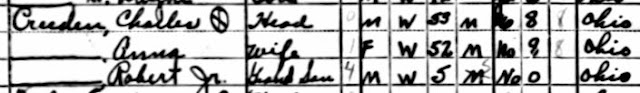 Creeden, Charles ⓧ Head 0 M W 53 M No 8 8 Ohio
Anna Wife 1 F W 52 M No 9 8 Ohio
Robert Jr. Grand Son 4 M W 5 S No 0 Ohio